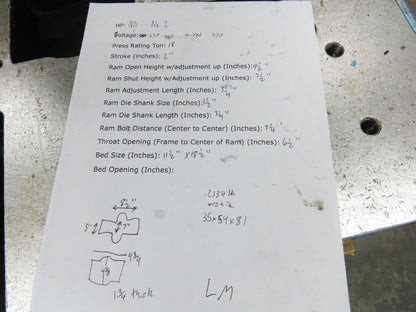 HP: NA No 2
Voltage: 220
Press Rating Ton: 18
Stroke (inches): 2"
Ram Open Height w/adjustment up (Inches): 9½"
Ram Shut Height w/Adjustment up (Inches): 7½"
Ram Adjustment Length (Inches):
Ram Die Shank Size (Inches): 1½"
Ram Die Shank Length (Inches):
Ram Bolt Distance (Center to Center) (Inches):
Throat Opening (Frame to Center of Ram) (Inches): 6½"
Bed Size (Inches): 11½" x 18½"
Bed Opening (Inches):
2134 lb
35x54x81
8½"
7"
4¾
1¾ thick
LM